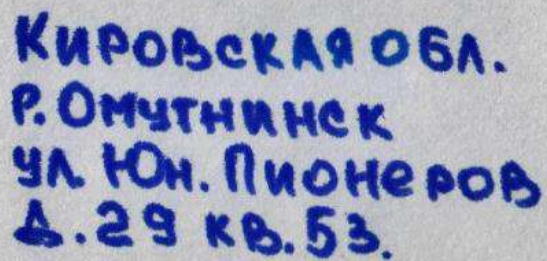 Кировская обл.
р. Омутнинск
ул. Юн. Пионеров
д. 29 кв. 53.